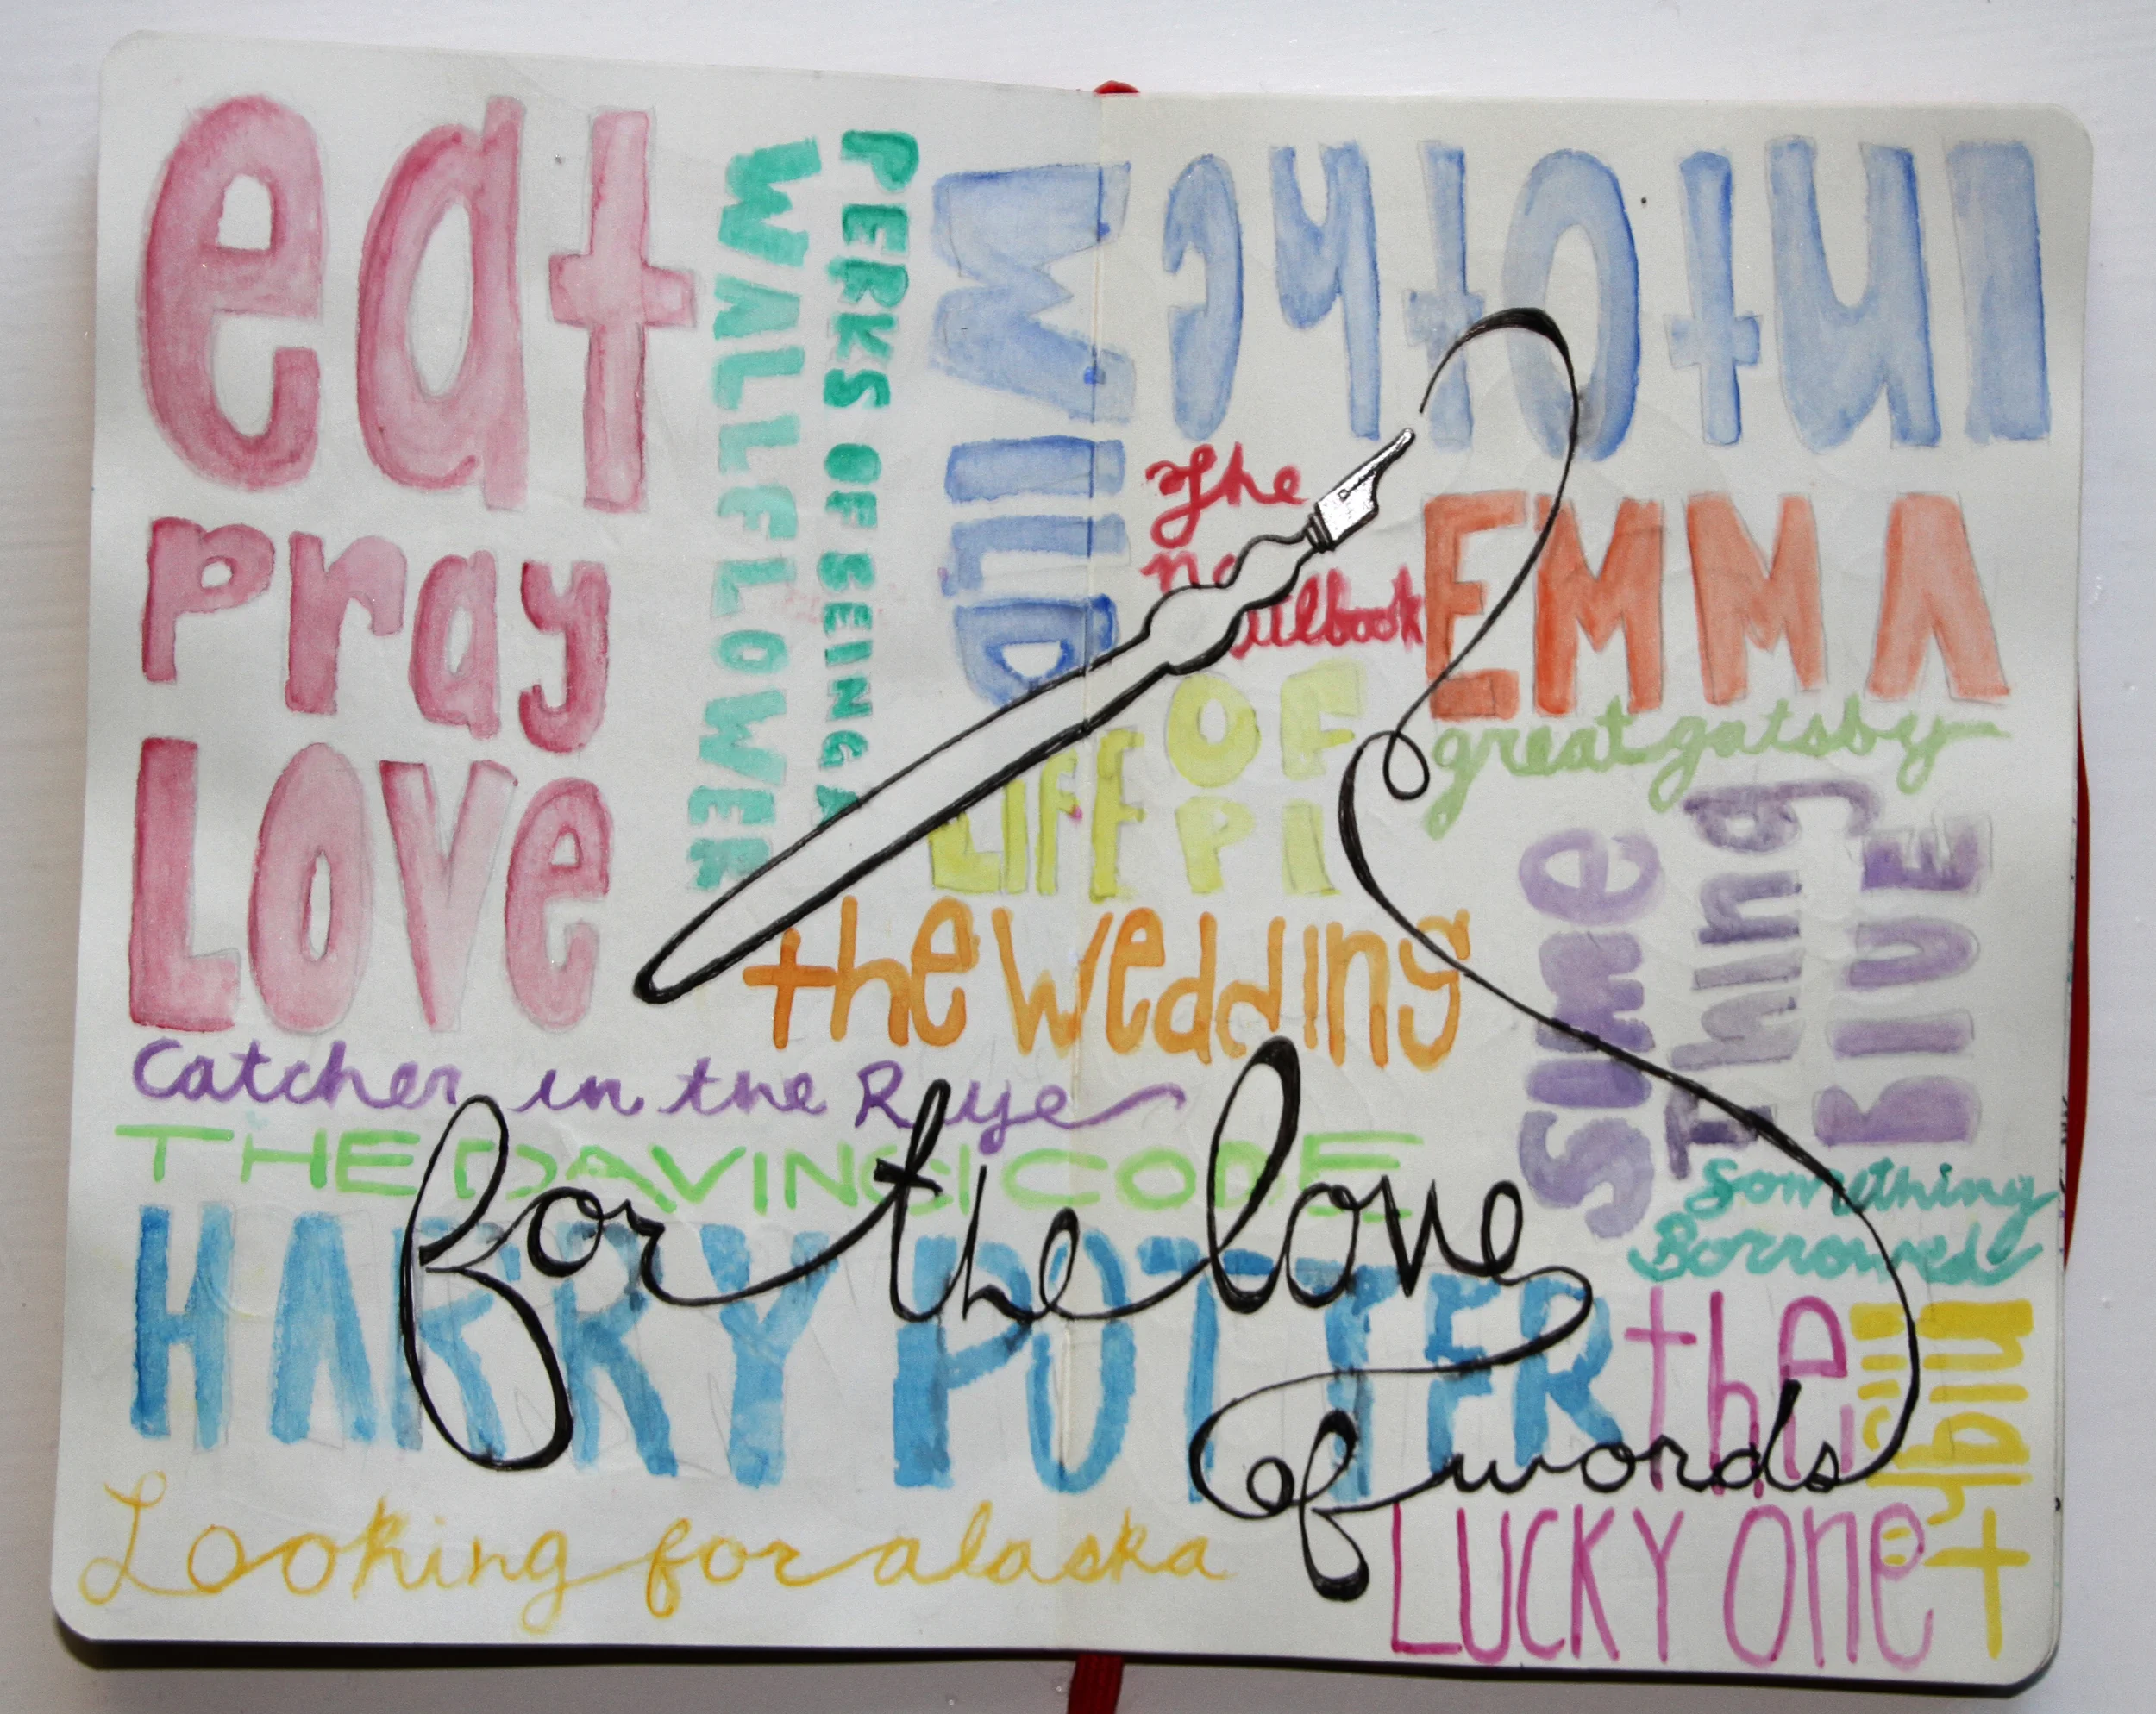 eat
pray
LOVE
PERKS OF BEING A
WALLFLOWER
into the
WILD
The
EMMA
great gatsby
LIFE OF
PI
the wedding
some
Thing
BlUE
Catcher in the Rye
THE DAVINCI CODE
Something
Borrowed
HARRY POTTER
the
LUCKY One
Looking for alaska
for the love
of words